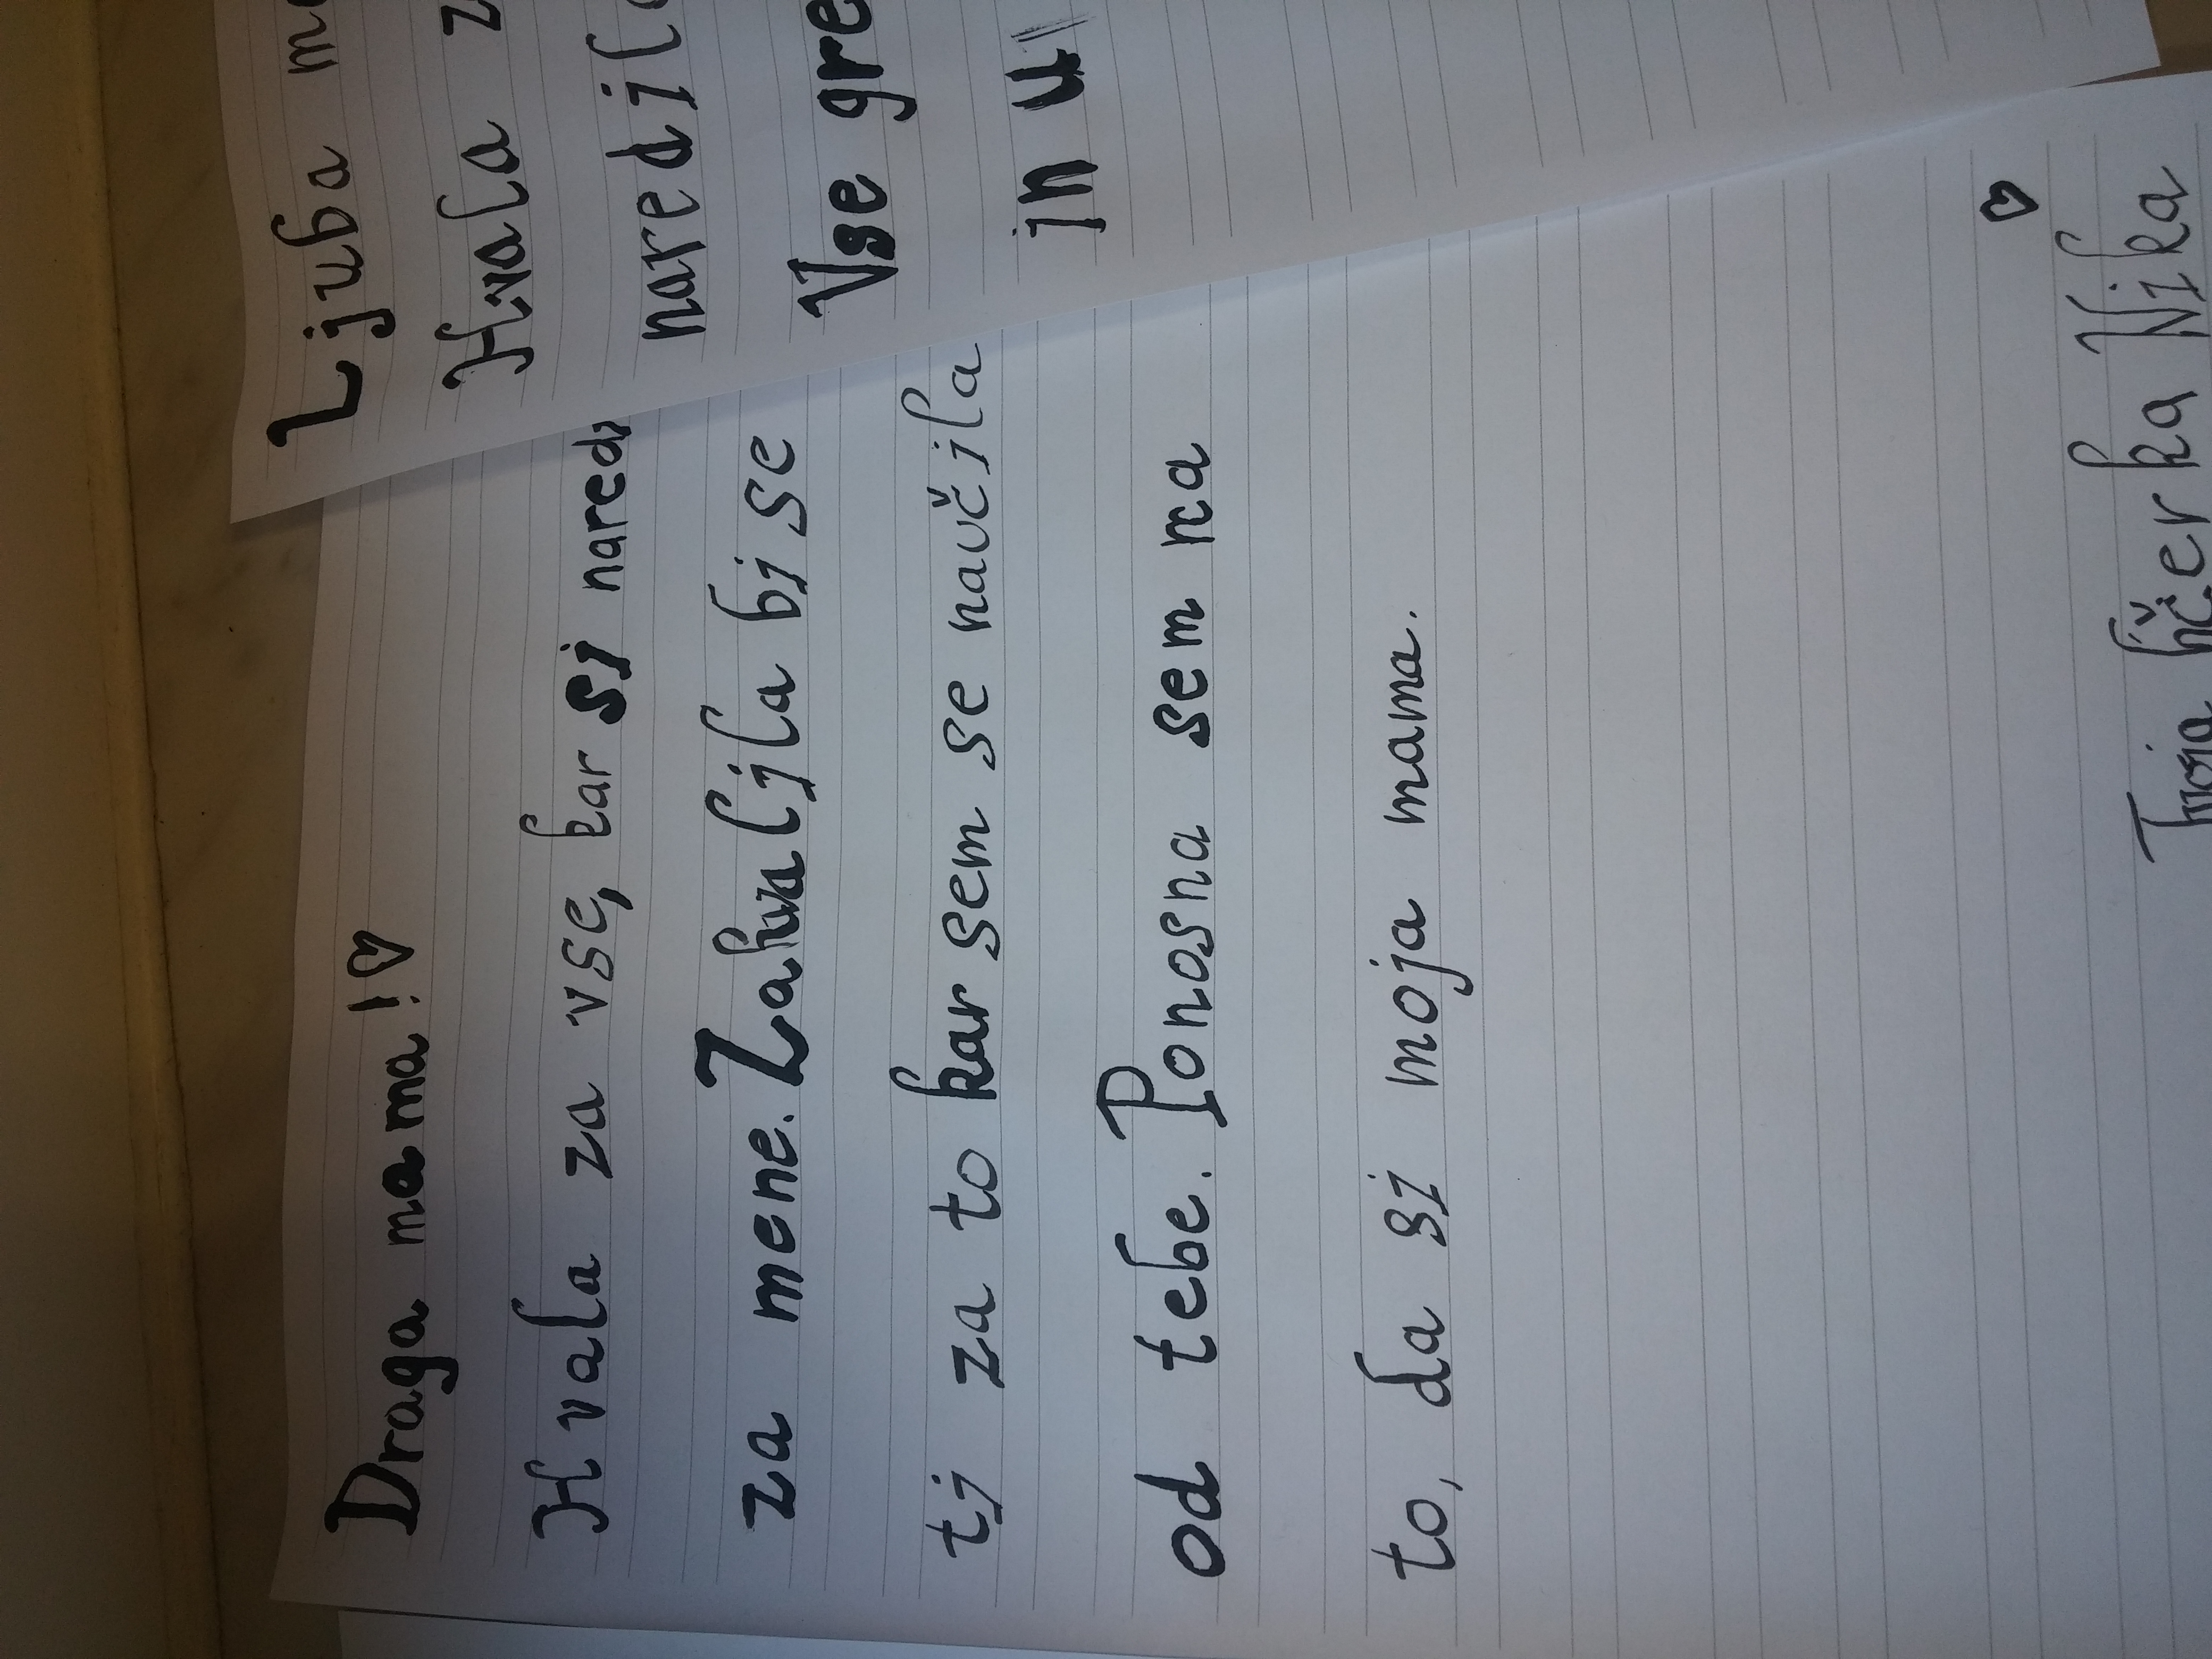 Draga mama!♡
Hvala za vse, kar si naredi
za mene. Zahvaljila bi se
ti za to kar sem se naučila
od tebe. Ponosna sem na
to, da si moja mama.
♡
Tvoja hčerka Nika
Ljuba
Hvala
naredil
Vse gre
in